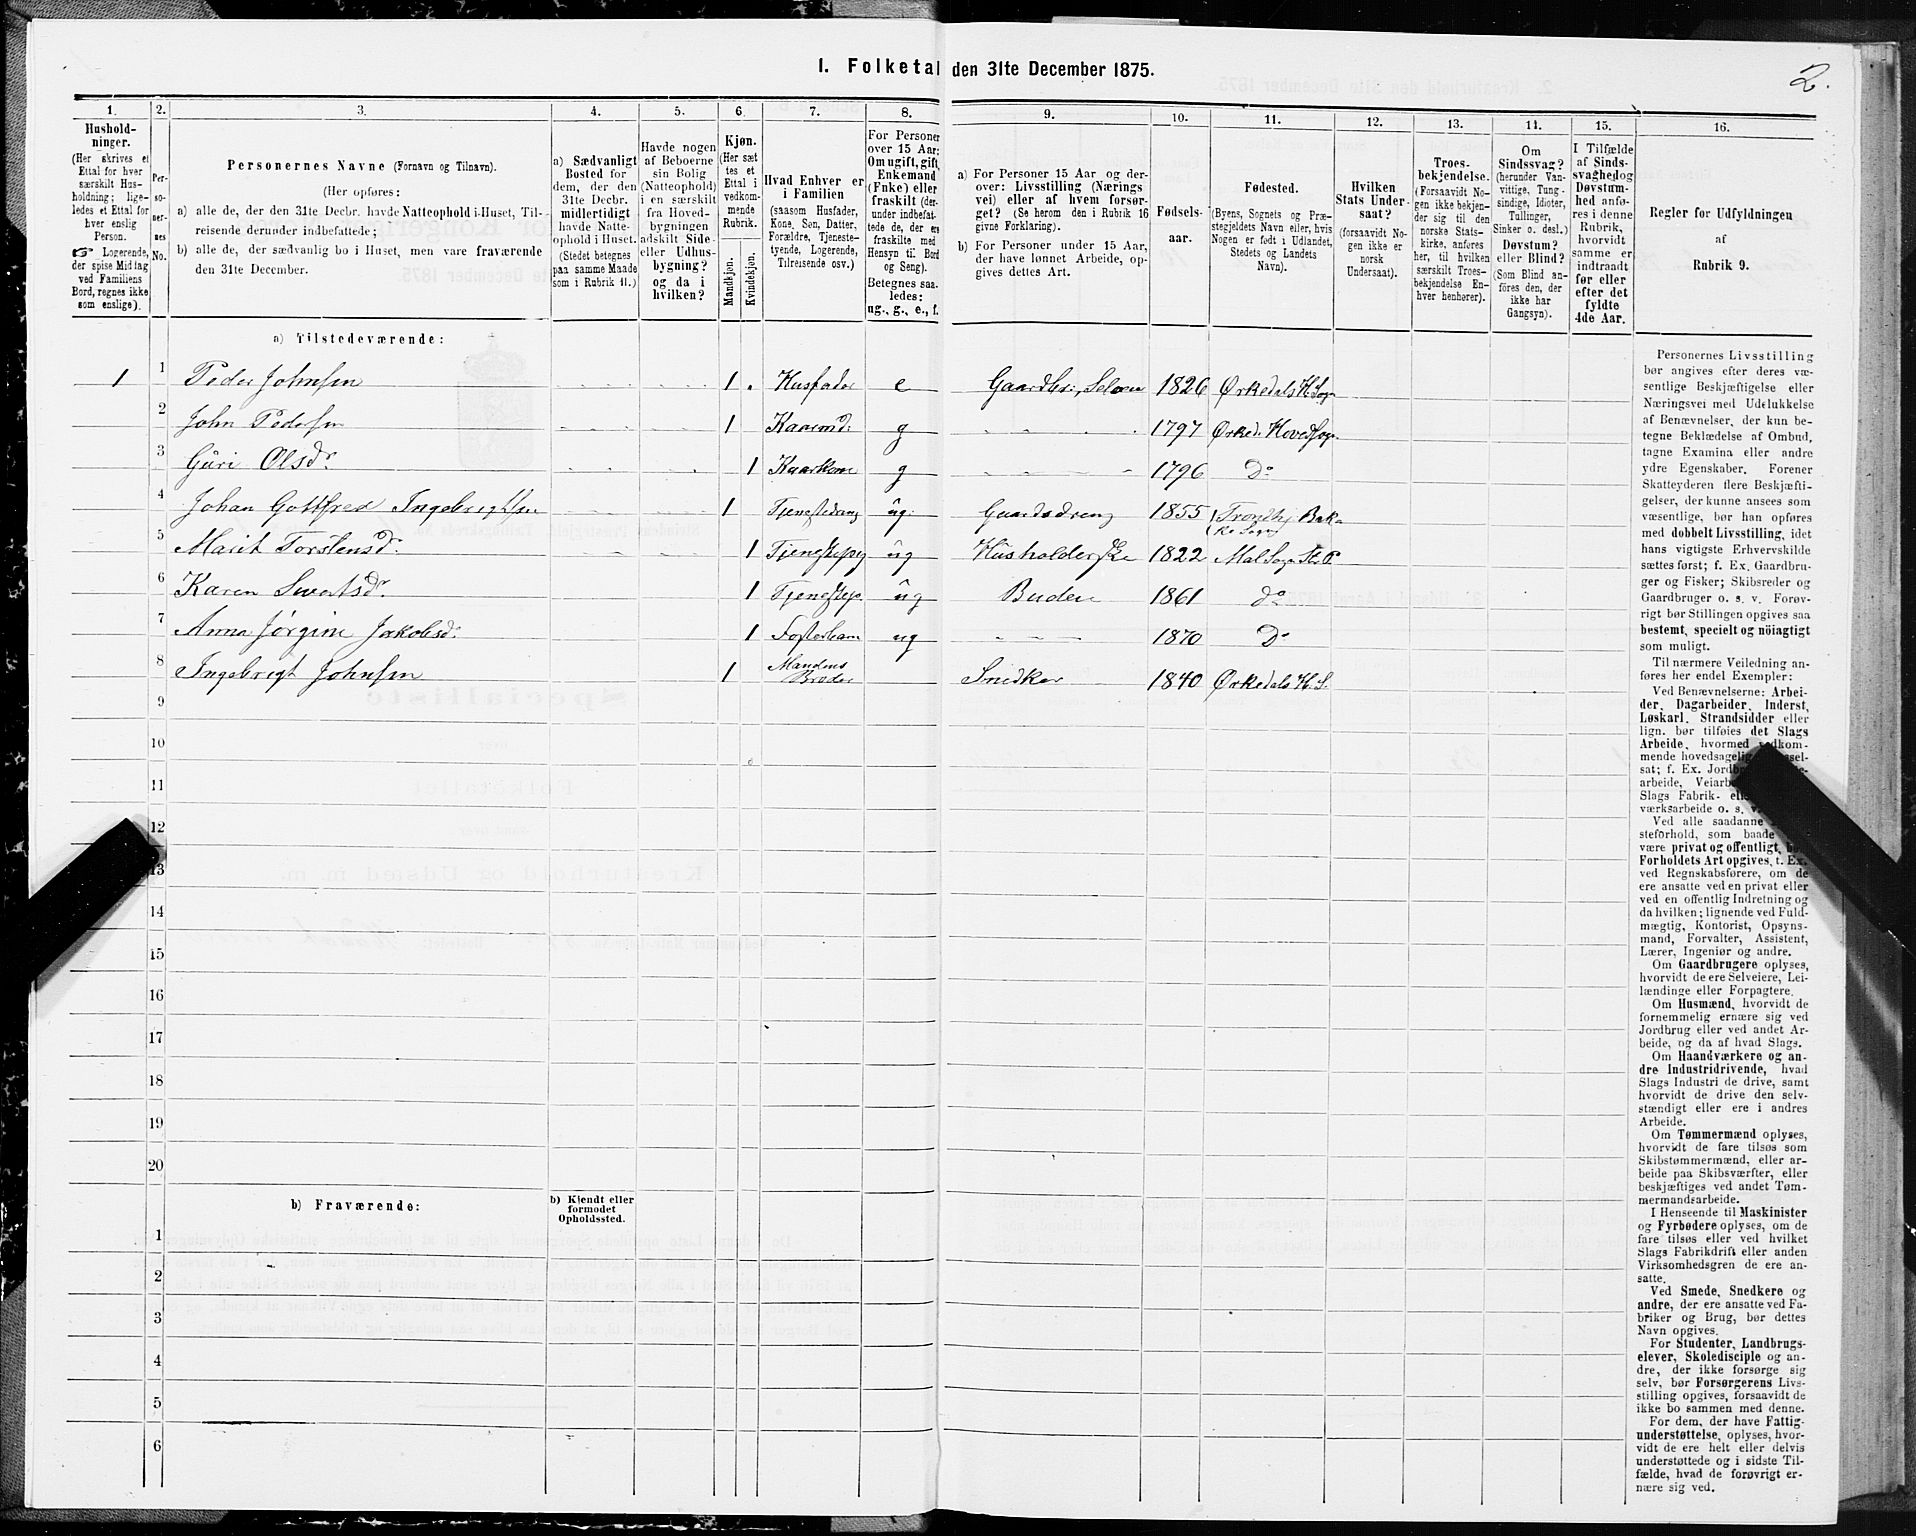 I. Folketal den 31te December 1875.
2.
1. 2. 3. 4. 5. 6. 7. 8. 9. 10. 11. 12. 13. 14. 15. 16.
Hushold-
ninger.
(Her skrives et
Ettal for hver
særskilt Hus-
holdning; lige-
ledes et Ettal for
hver enslig
Person.
☞ Logerende,
der spise Middag
ved Familiens
Bord, regnes ikke
som enslige).
Per-
so-
ner-
nes
No.
Personernes Navne (Fornavn og Tilnavn).
(Her opføres:
a) alle de, der den 31te Decbr. havde Natteophold i Huset, Til-
reisende derunder indbefattede;
b) alle de, der sædvanlig bo i Huset, men vare fraværende
den 31te December.
a) Sædvanligt
Bosted for
dem, der den
31te Decbr.
midlertidigt
havde Natte-
ophold i Huset.
(Stedet betegnes
paa samme Maade
som i Rubrik 11.)
Havde nogen
af Beboerne
sin Bolig
(Natteophold)
i en særskilt
fra Hoved-
bygningen
adskilt Side-
eller Udhus-
bygning?
og da i
hvilken?
Kjøn.
(Her sæt
tes et
Ettal i
vedkom-
mende
Rubrik.
Mandkjøn.
Kvindekjøn.
Hvad Enhver er
i Familien
(saasom Husfader,
Kone, Søn, Datter,
Forældre, Tjeneste-
tyende, Logerende,
Tilreisende osv.)
For Personer
over 15 Aar:
Om ugift, gift,
Enkemand
(Enke) eller
fraskilt (der-
under indbefat-
tede de, der ere
fraskilte med
Hensyn til Bord
og Seng).
Betegnes saa-
ledes:
ug., g., e., f.
a) For Personer 15 Aar og der-
over: Livsstilling (Nærings
vei) eller af hvem forsør-
get? (Se herom den i Rubrik 16
givne Forklaring).
b) For Personer under 15 Aar,
der have lønnet Arbeide, op-
gives dettes Art.
Fødsels-
aar.
Fødested.
(Byens, Sognets og Præ-
stegjeldets Navn eller, hvis
Nogen er født i Udlandet,
Stedets og Landets
Navn).
Hvilken
Stats Under-
saat?
(forsaavidt No-
gen ikke er
norsk
Undersaat).
Troes-
bekjendelse.
(Forsaavidt No-
gen ikke bekjen-
der sig til den
norske Stats-
kirke, anføres
her, til hvilken
særskilt Troes-
bekjendelse En-
hver henhører).
Om
Sindssvag?
(herunder Van-
vittige, Tung-
sindige, Idioter,
Tullinger,
Sinker o. desl.)
Døvstum?
eller Blind?
(Som Blind an-
føres den, der
ikke har
Gangsyn).
I Tilfælde
af Sinds-
svaghed og
Døvstum-
hed anfø-
res i denne
Rubrik,
hvorvidt
samme er
indtraadt
før eller
efter det
fyldte
4de Aar.
Regler for Udfyldningen
af
Rubrik 9.
a) Tilstedeværende:
1 1 Peder Johnsen 1 Husfader e Gaardbr:, Selveier 1826 Ørkedals H. Sogn
2 John Pedersen 1 Kaarmd: g 1797 Ørked: Hovedsogn
3 Guri Olsdr 1 Kaarkone g 1796 Do
4 Johan Gottfred Ingebrigtsen 1 Tjenestedreng ug: Gaardsdreng 1855 Trondhj Bak-
ke Sogn
5 Marit Torstensd. 1 Tjenestepig ug Husholderske 1822 Mal Sogn St. P
6 Karen Sivertsdr 1 Tjenestep. ug Budeie 1861 do
7 Anna Jørgine Jakobsd. 1 Fosterbarn ug 1870 Do
8 Ingebrigt Johnsen 1 Mandens
Broder Snedker 1840 Ørkedals H. S.
9
10
11
12
13
14
15
16
17
18
19
20
b) Fraværende:
b) Kjendt eller
formodet
Opholdssted.
1
2
3
4
5
6
Personernes Livsstilling
bør angives efter deres væ-
sentlige Beskjæftigelse eller
Næringsvei med Udelukkelse
af Benævnelser, der kun be-
tegne Beklædelse af Ombud,
tagne Examina eller andre
ydre Egenskaber. Forener
Skatteyderen flere Beskjæfti-
gelser, der kunne ansees som
væsentlige, bør han opføres
med dobbelt Livsstilling, idet
hans vigtigste Erhvervskilde
sættes først; f. Ex. Gaardbru-
ger og Fisker; Skibsreder og
Gaardbruger o. s. v. Forøv-
rigt bør Stillingen opgives saa
bestemt, specielt og nöiagtigt
som muligt.
Til nærmere Veiledning an-
føres her endel Exempler:
Ved Benævnelserne: Arbei-
der, Dagarbeider, Inderst,
Løskarl, Strandsidder eller
lign. bør tilføies det Slags
Arbeide, hvormed vedkom-
mende hovedsagelig
sat; f. Ex.
arbeide, Veiarb
Slags Fabrik-
værksarbeide o. s. v.
Ved alle saadanne
steforhold, som baade
være privat og offentligt, bør
Forholdets Art opgives, t. Ex.
ved Regnskabsførere, om de
ere ansatte ved en privat eller
ved en offentlig Indretning og
da hvilken; lignende ved Fuld-
mægtig, Kontorist, Opsyns-
mand, Forvalter, Assistent,
Lærer, Ingeniør og andre.
Om Gaardbrugere oplyses,
hvorvidt de ere Selveiere, Lei-
lændinge eller Forpagtere.
Om Husmænd, hvorvidt de
fornemmelig ernære sig ved
Jordbrug eller ved andet Ar-
beide, og da af hvad Slags.
Om Haandværkere og an-
dre Industridrivende, hvad
Slags Industri de drive, samt
hvorvidt de drive den selv-
stændigt eller ere i andres
Arbeide.
Om Tømmermænd oplyses,
hvorvidt de fare tilsøs som
Skibstømmermænd, eller ar-
beide paa Skibsværfter, eller
beskjæftiges ved andet Tøm-
mermandsarbeide.
I Henseende til Maskinister
og Fyrbødere oplyses, om de
fare tilsøs eller ved hvilket
Slags Fabrikdrift eller anden
Virksomhedsgren de ere an-
satte.
Ved Smede, Snedkere og
andre, der ere ansatte ved Fa-
briker og Brug, bør dettes
Navn opgives.
For Studenter, Landbrugs-
elever, Skoledisciple og an-
dre, der ikke forsørge sig
selv, bør Forsørgerens Livs-
stilling opgives, forsaavidt de
ikke bo sammen med denne.
For dem, der have Fattig-
understøttelse, oplyses, hvor-
vidt de ere helt eller delvis
understøttede og i sidste Til-
fælde, hvad de forøvrigt er-
nære sig ved.